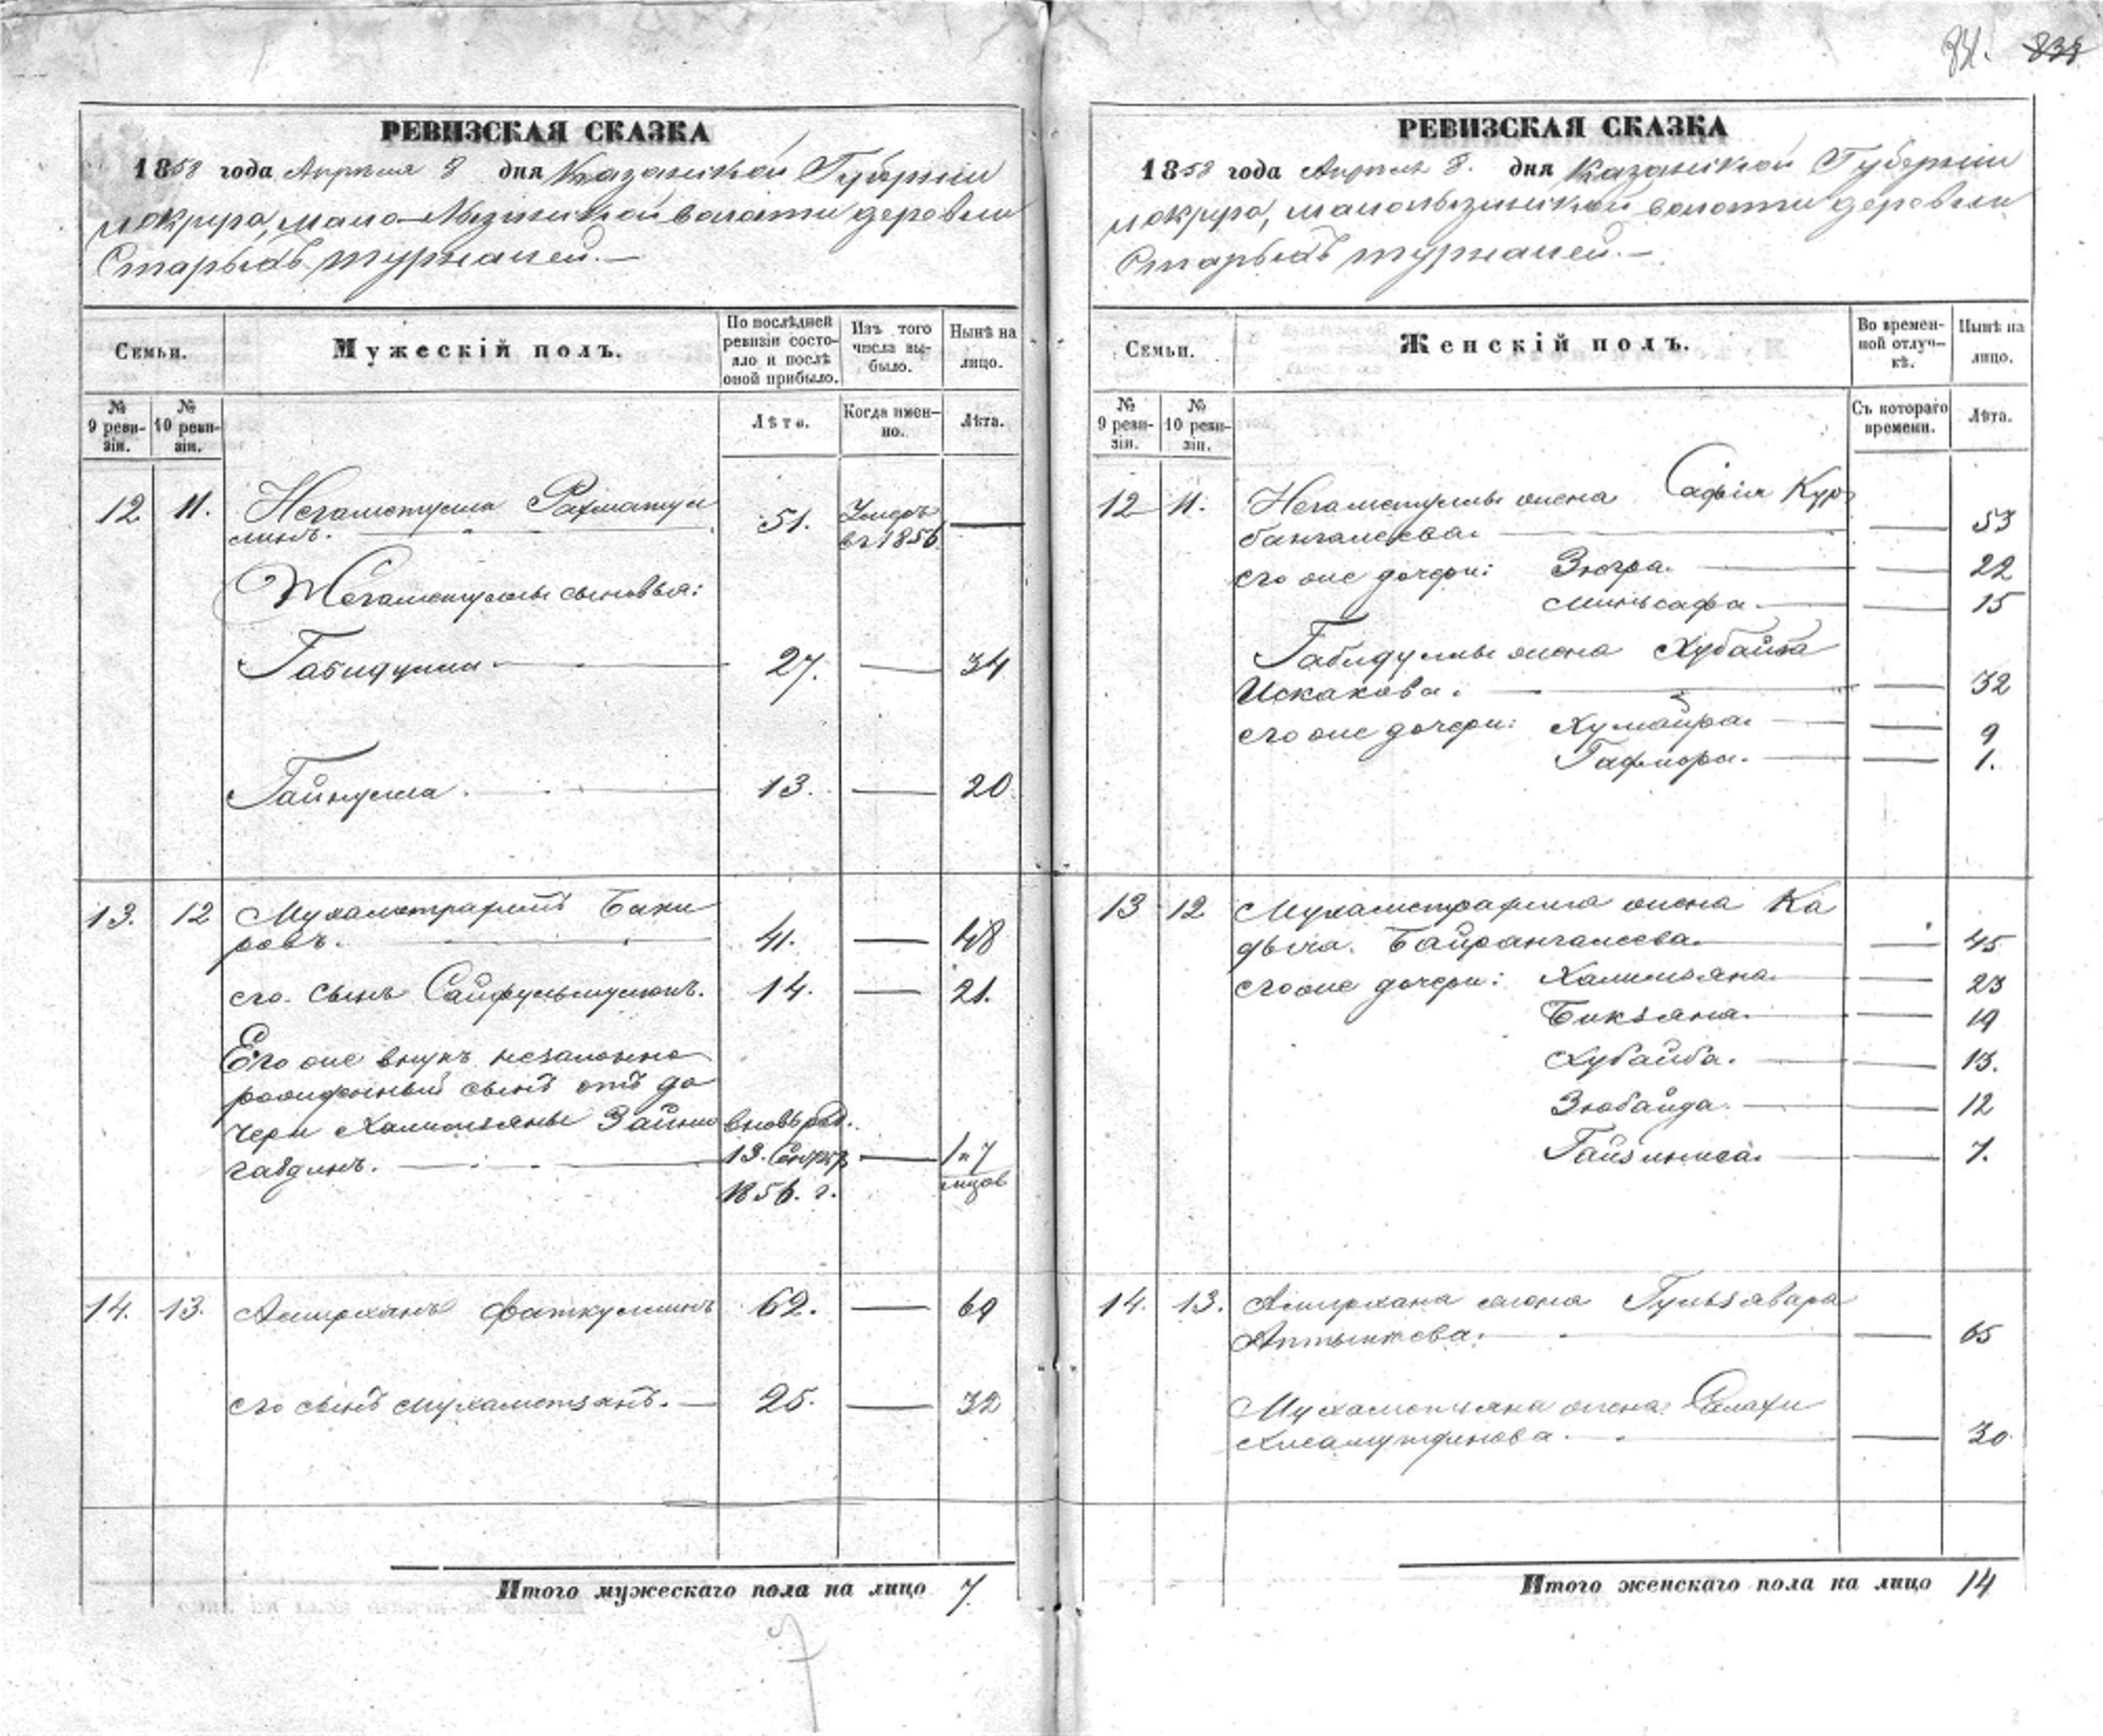 838
РЕВИЗСКАЯ СКАЗКА
1858 года Апреля 8 дня Казанской Губернии
округа, мало-Лызинской волости деревни
Старыхъ турналей.—
Семьи.
Мужескій полъ.
По послѣдней ревизіи состояло и послѣ оной прибыло.
Изъ того числа выбыло.
Нынѣ на лицо.
№ 9 ревизіи.
№ 10 ревизіи.
Лѣта.
Когда именно.
Лѣта.
12 11. Негаметулла Рахматул
линъ. — 51. Умеръ въ 1856 —
Негаметуллы сыновья:
Габидулла — 27. — 34
Гайнулла. — 13. — 20.
13. 12 Мухаметрафикъ Баки
ровъ. — 41. — 48
его сынъ Сайфульмулюкъ. 14. — 21.
Его же внукъ незаконно
рожденный сынъ отъ до
чери Халимзяны Зайни вновь рож.
габдинъ. — 13. — 1 и 7
1856. г.
14. 13. Амирханъ Фаткуллинъ 62. — 69
его сынъ Мухаметзянъ. — 25. — 32
Итого мужескаго пола на лицо 7.
7
РЕВИЗСКАЯ СКАЗКА
1858 года Апреля 8. дня Казанской Губернии
округа, малолызинской волости деревни
Старыхъ турналей.—
Семьи.
Женскій полъ.
Во временной отлучкѣ.
Нынѣ на лицо.
№ 9 ревизіи.
№ 10 ревизіи.
Съ котораго времени.
Лѣта.
12 11. Негаметуллы жена Сафія Кур
бангалеева. — 53
его же дочери: Зюгра. — 22
Миньсафа. — 15
Габидуллы жена Хубайба
Искакова. — 32
его же дочери: Хумайра. — 9
Гафиора. — 1.
13 12 Мухаметрафика жена Ка
дыча. Байрангалеева. — 45
его же дочери: Халимзяна. — 23
Бикзяна. — 19
Хубайба. — 13.
Зюбайда. — 12
Гайзиниса. — 7.
14. 13. Амирхана жена Гульзявара
Аптыкеева. — 65
Мухаметзяна жена
Хисамутдинова. — 30
Итого женскаго пола на лицо 14